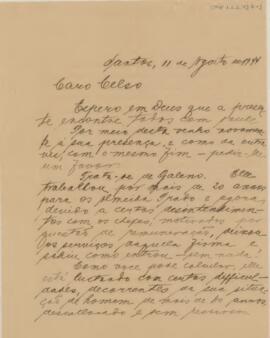 Santos, 11 de Agosto de 1941
Caro Celso
Espero em Deus que a presen-
te encontre todos com saude
Por meio desta venho novamen-
te à sua presença, e como da outra
vez, com o mesmo fim - pedir-te
um favor.
Trata-se de Galeno. Elle
trabalhou por mais de 20 annos
para os Almeida Prado e agora,
devido a certos desentendimen-
tos com os chefes, motivados por
questões de remuneração, deixou
os serviços daquella firma e
sahiu como entrou - sem nada.
Como você pode calcular, elle
está luctando com certas difficul-
dades, decorrentes da sua situa-
ção de homem de mais de 40 annos
descollocado e sem